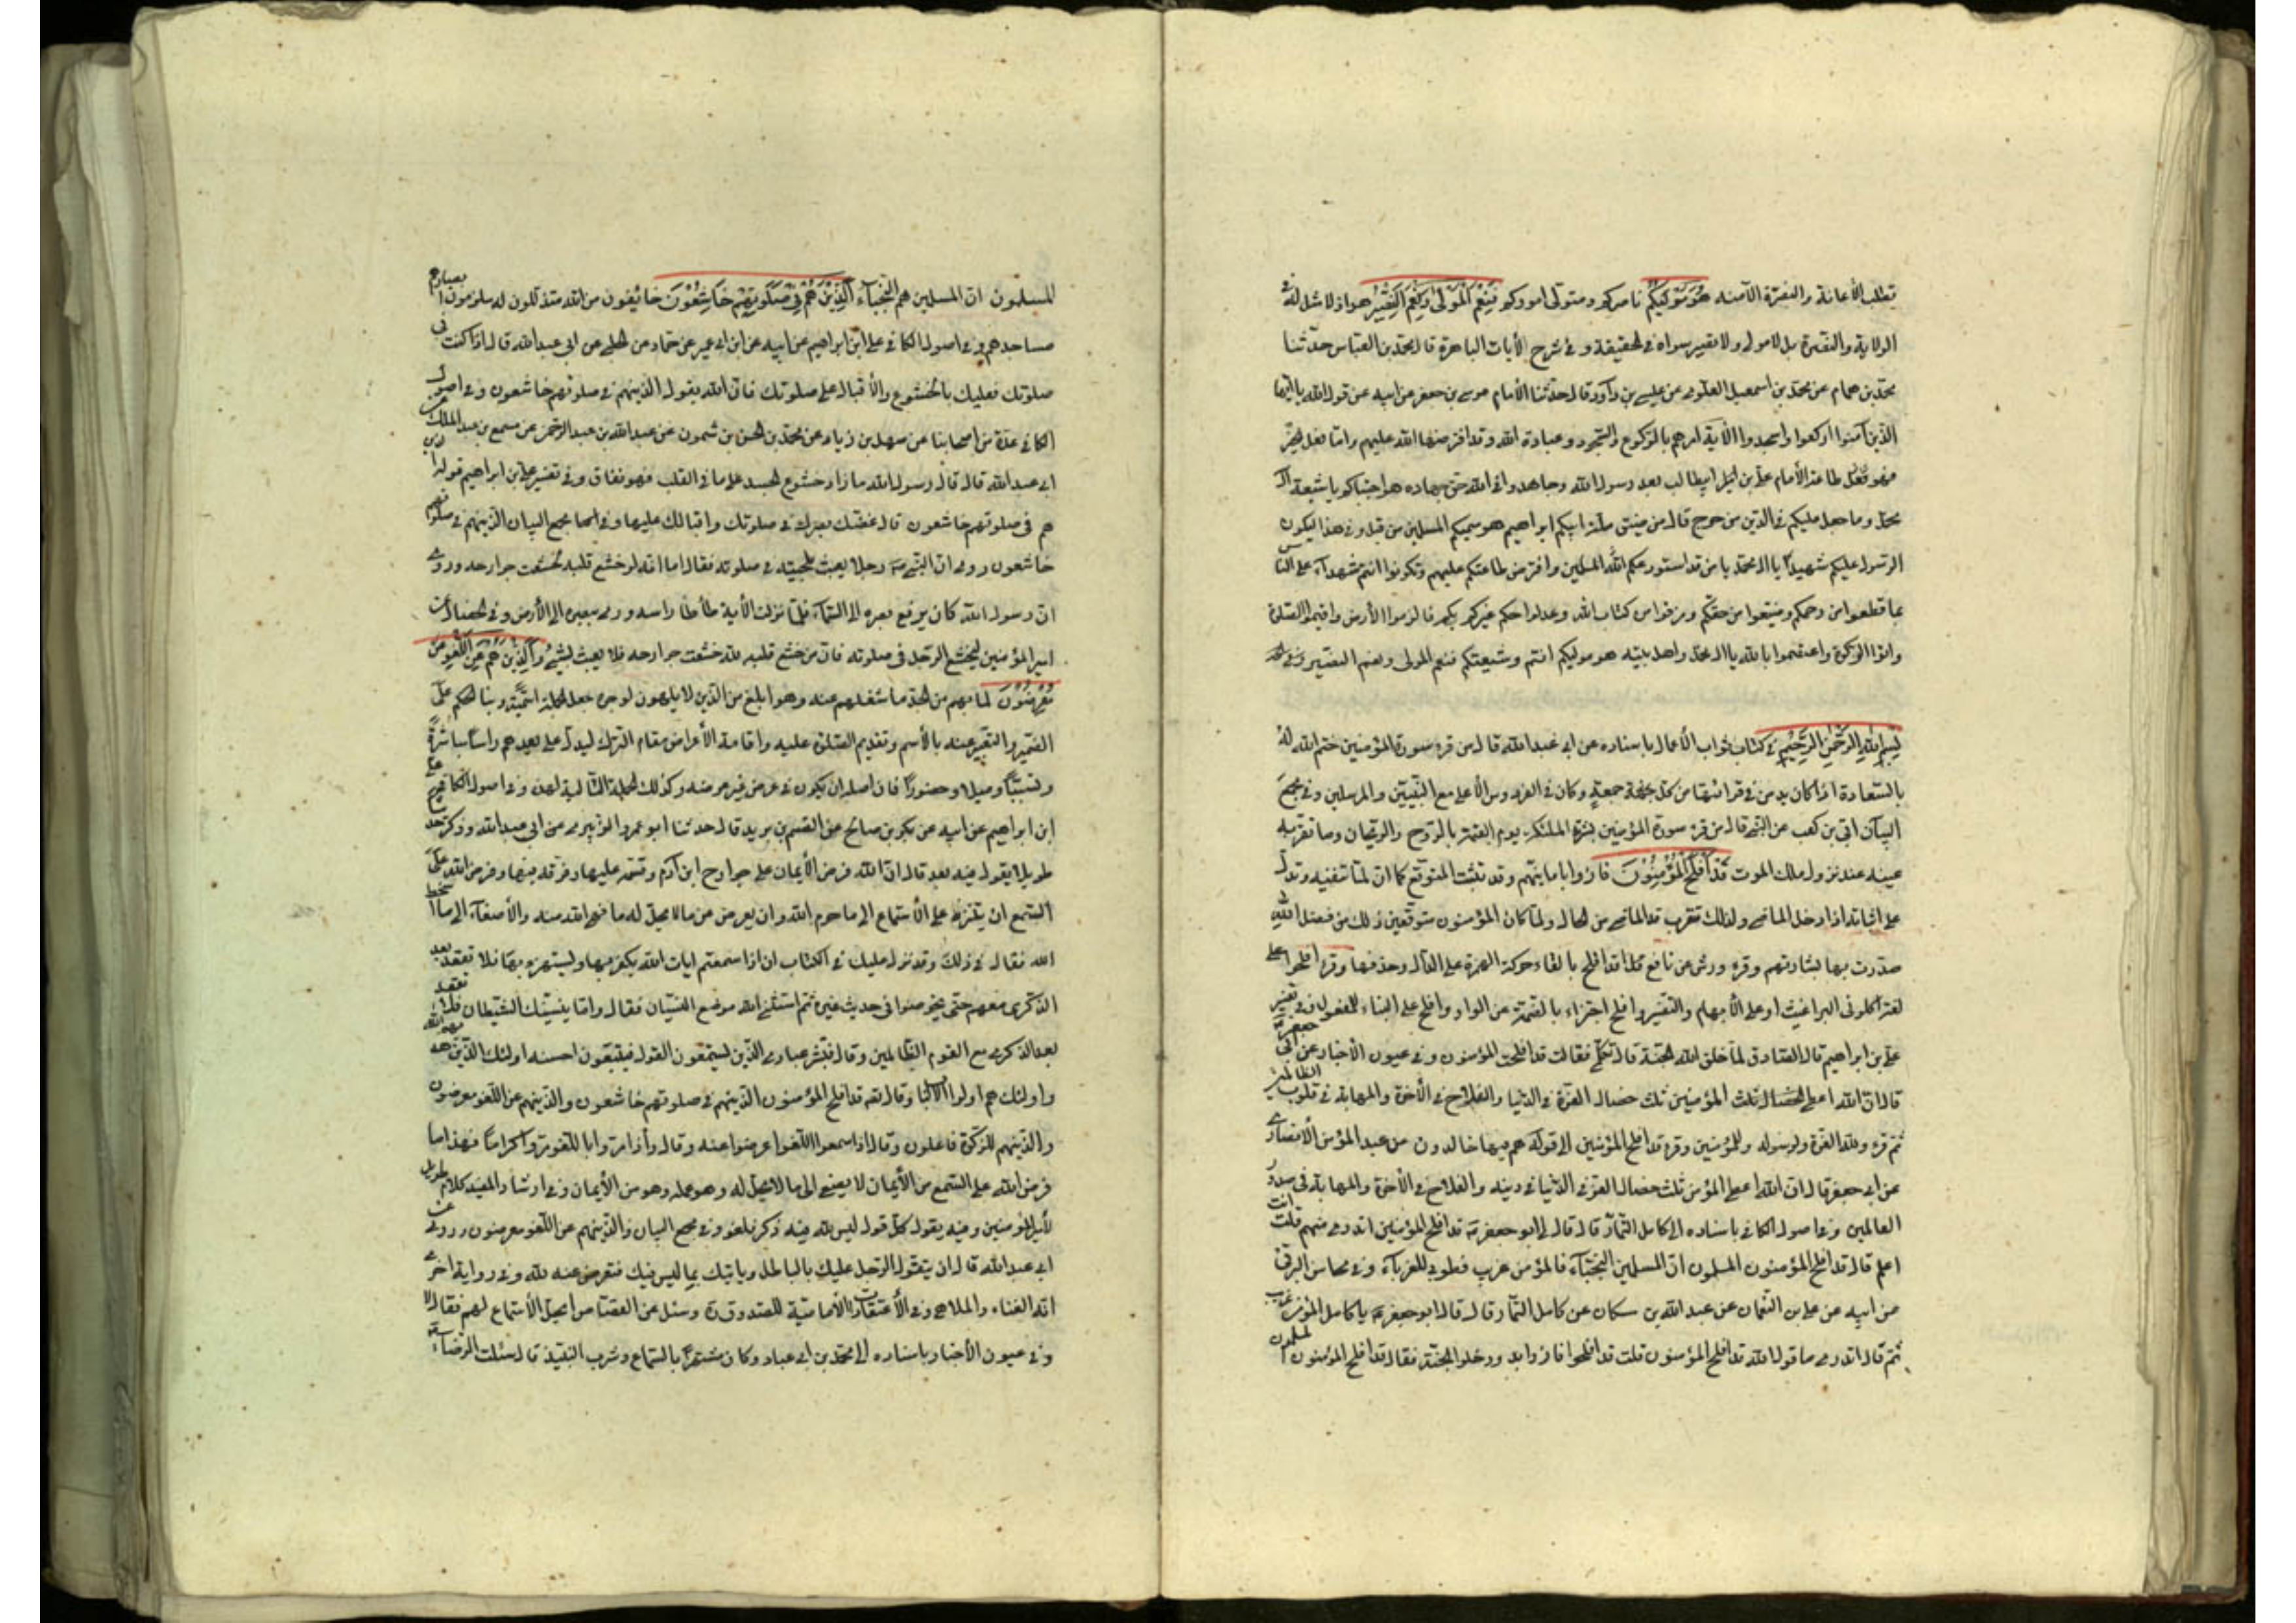 تطلب الأعانة والنصرة الآمنه هُوَ مَوْلَيكُمْ ناصركم ومتولى اموركم فَنِعْمَ الْمَوْلَى وَنِعْمَ النَّصِيْرُ هو اذ لا مثل له فى
الولاية والنصرة بل لا مولى ولا نصير سواه فى الحقيقة و فى شرح الآيات الباهرة قال محمد بن العباس حدثنا
محمد بن همام عن محمد بن اسمعيل العلوى عن عيسى بن داود قال حدثنا الأمام موسى بن جعفر عن ابيه عن قول الله يا ايها
الذين آمنوا اركعوا واسجدوا الآية امرهم بالركوع والسجود وعبادة الله وقد افترضها الله عليهم واما فعل الخير
فهو طاعة الأمام على بن ابيطالب بعد رسول الله وجاهدوا فى الله حق جهاده هو اجتباكم يا شيعة آل
محمد وما جعل عليكم فى الدين من حرج قال من ضيق ملة ابيكم ابراهيم هو سميكم المسلمين من قبل وفى هذا ليكون
الرسول عليكم شهيدا يا آل محمد يا من قد استودعكم الله المسلمين وافترض طاعتكم عليهم وتكونوا انتم شهداء على الناس
بما قطعوا من رحمكم وضيعوا من حقكم ومزقوا من كتاب الله وعدلوا حكم غيركم بكم فالزموا الأرض واقيموا الصلوة
واتوا الزكوة واعتصموا بالله يا آل محمد واهل بيته هو موليكم انتم وشيعتكم فنعم المولى ونعم النصير
بِسْمِ اللهِ الرَّحْمٰنِ الرَّحِيْمِ فى كتاب ثواب الأعمال باسناده عن ابى عبد الله قال من قرء سورة المؤمنين ختم الله له
بالسعادة اذا كان يدمن فى قرائتها من كل جمعة وكان فى الفردوس الأعلى مع النبيين والمرسلين وفى مجمع
البيان ابى بن كعب عن النبى قال من قرء سورة المؤمنين بشرته الملئكة يوم القيمة بالروح والريحان وما تقر به
عينه عند نزول ملك الموت قَدْ اَفْلَحَ الْمُؤْمِنُوْنَ فازوا بامانيهم وقد تثبت المتوقع كما ان لما تنفيه وتدل
على اثباته اذا دخل الماضى ولذلك تقرب الماضى من الحال ولما كان المؤمنون متوقعين ذلك من فضل الله
صدرت بها بشارتهم وقرء ورش عن نافع قد افلح بالقاء حركة الهمزة على الدال وحذفها وقرء افلحوا على
لغة اكلونى البراغيث او على الأبهام والتفسير وافلح اجتزاء بالضمة عن الواو وافلح على البناء للمفعول وفى تفسير
على بن ابراهيم قال الصادق لما خلق الله الجنة قال تكلمى فقالت قد افلح المؤمنون وفى عيون الأخبار عن ابى جعفر
قال ان الله اعطى المؤمنين ثلث خصال العزة فى الدنيا والفلاح فى الآخرة والمهابة فى قلوب الظالمين
ثم قرء ولله العزة ولرسوله وللمؤمنين وقرء قد افلح المؤمنين الى قوله هم فيها خالدون عن عبد المؤمن الأنصارى
عن ابى جعفر قال ان الله اعطى المؤمن ثلث خصال العز فى الدنيا فى دينه والفلاح فى الآخرة والمهابة فى صدور
العالمين وفى اصول الكافى باسناده الى كامل التمار قال قال لى ابو جعفر قد افلح المؤمنين اتدرى منهم قلت انت
اعلم قال قد افلح المؤمنون المسلمون ان المسلمين النجباء فالمؤمن غريب فطوبى للغرباء وفى محاسن البرقى
عن ابيه عن على بن النعمان عن عبد الله بن سكان عن كامل التمار قال قال ابو جعفر يا كامل المؤمن غريب
ثم قال اتدرى ما قول الله قد افلح المؤمنون قلت قد افلحوا فازوا به ودخلوا الجنة فقال قد افلح المؤمنون المسلمون
المسلمون ان المسلمين هم النجباء اَلَّذِيْنَ هُمْ فِيْ صَلَوتِهِمْ خَاشِعُوْنَ خائفون من الله متذللون له ملزمون ابصارهم
مساجدهم وفى اصول الكافى على ابن ابراهيم عن ابيه عن ابن ابى عمير عن حماد عن الحلبى عن ابى عبد الله قال اذا كنت فى
صلوتك فعليك بالخشوع والأقبال على صلوتك فان الله يقول الذينهم فى صلوتهم خاشعون وفى اصول
الكافى عدة من اصحابنا عن سهل بن زياد عن محمد بن الحسن بن شمون عن عبد الله بن عبد الرحمن عن مسمع بن عبد الملك عن
ابى عبد الله قال قال رسول الله ما زاد خشوع الجسد على ما فى القلب فهو نفاق وفى تفسير على بن ابراهيم قوله
هم فى صلوتهم خاشعون قال غضك بصرك فى صلوتك واقبالك عليها وفى مجمع البيان الذينهم فى صلوتهم
خاشعون روى ان النبى رجلا يعبث بلحيته فى صلوته فقال اما انه لو خشع قلبه لخشعت جوارحه وروى
ان رسول الله كان يرفع بصره الى السماء فلما نزلت الأية طأطأ راسه ورمى ببصره الى الأرض وفى الخصال عن
امير المؤمنين ليخشع الرجل فى صلوته فان من خشع قلبه لله خشعت جوارحه فلا يعبث بشئ وَالَّذِيْنَ هُمْ عَنِ اللَّغْوِ
مُعْرِضُوْنَ لما بهم من الجد ما شغلهم عنه وهو ابلغ من الذين لا يلهون لوجوه جعل الجملة اسمية وبناء الحكم على
الضمير والتعبير عنه بالأسم وتقديم الصلة عليه واقامة الأعراض مقام الترك ليدل على بعدهم راسا مباشرة
وتسببا وميلا وحضورا فان اصله ان يكون فى عرض غير عرضه وكذلك الجملة التالية لهذه وفى اصول الكافى على
ابن ابراهيم عن ابيه عن بكر بن صالح عن القسم بن بريد قال حدثنا ابو عمرو الزبيرى عن ابى عبد الله وذكر حديثا
طويلا يقول فيه بعد قال ان الله فرض الأيمان على جوارح ابن آدم وقسمه عليها وفرقه فيها وفرض الله على
السمع ان يتنزه على الأستماع الى ما حرم الله وان يعرض عن ما لا يحل له ما نهى الله منه والأصغاء الى ما اسخط
الله فقال فى ذلك وقد نزل عليك فى الكتاب ان اذا سمعتم ايات الله يكفر بها ويستهزء بها فلا تقعد بعد
الذكرى معهم حتى يخوضوا فى حديث غيره ثم استثنى الله موضع النسيان فقال واما ينسينك الشيطان فلا تقعد
بعد الذكرى مع القوم الظالمين وقال فبشر عبادى الذين يستمعون القول فيتبعون احسنه اولئك الذين هديهم الله
واولئك هم اولوا الالباب وقال قد افلح المؤمنون الذينهم فى صلوتهم خاشعون والذينهم عن اللغو معرضون
والذينهم للزكوة فاعلون وقال اذا سمعوا اللغو اعرضوا عنه وقال واذا مروا باللغو مروا كراما فهذا ما
فرض الله على السمع من الأيمان لا يصغى الى ما لا يحل له وهو عمله وهو من الأيمان وفى ارشاد المفيد كلام طويل
لأمير المؤمنين وفيه يقول كل قول ليس لله فيه ذكر فلغو وفى مجمع البيان والذينهم عن اللغو معرضون وروى عن
ابى عبد الله قال ان يتقول الرجل عليك بالباطل وياتيك بما ليس فيك فتعرض عنه لله وفى رواية اخرى
انه الغناء والملاهى وفى الأعتقادات الأمامية للصدوق وسئل عن القصاص ايحل الأستماع لهم فقال لا
وفى عيون الأخبار باسناده الى محمد بن ابى عباد وكان مشتهرا بالسماع وشرب النبيذ قال سئلت الرضا